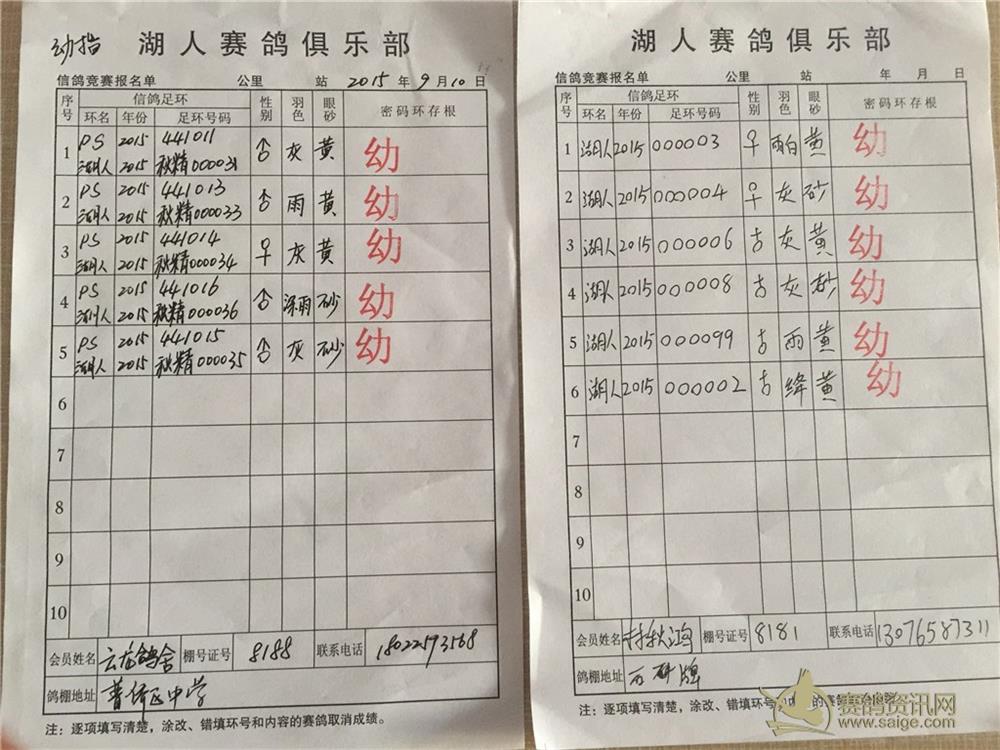 幼指 湖人赛鸽俱乐部
信鸽竞赛报名单 公里 站 2015 年 9 月 10 日
序号 信鸽足环 性别 羽色 眼砂 密码环存根
环名 年份 足环号码
1 PS 2015 441011 ♂ 灰 黄 幼
湖人 2015 秋精000031
2 PS 2015 441013 ♂ 雨 黄 幼
湖人 2015 秋精000033
3 PS 2015 441014 ♀ 灰 黄 幼
湖人 2015 秋精000034
4 PS 2015 441016 ♂ 深雨 砂 幼
湖人 2015 秋精000036
5 PS 2015 441015 ♂ 灰 砂 幼
湖人 2015 秋精000035
6
7
8
9
10
会员姓名 云龙鸽舍 棚号证号 8188 联系电话 18022573568
鸽棚地址 普侨区中学
注：逐项填写清楚，涂改、错填环号和内容的赛鸽取消成绩。
湖人赛鸽俱乐部
信鸽竞赛报名单 公里 站 年 月 日
序号 信鸽足环 性别 羽色 眼砂 密码环存根
环名 年份 足环号码
1 湖人 2015 000003 ♀ 雨白 黄 幼
2 湖人 2015 000004 ♀ 灰 砂 幼
3 湖人 2015 000006 ♂ 灰 黄 幼
4 湖人 2015 000008 ♂ 灰 砂 幼
5 湖人 2015 000099 ♂ 雨 黄 幼
6 湖人 2015 000002 ♂ 绛 黄 幼
7
8
9
10
会员姓名 林秋鸿 棚号证号 8181 联系电话 13076587311
鸽棚地址
注：逐项填写清楚，涂改、错填环号和内容的赛鸽
赛鸽资讯网
www.saige.com